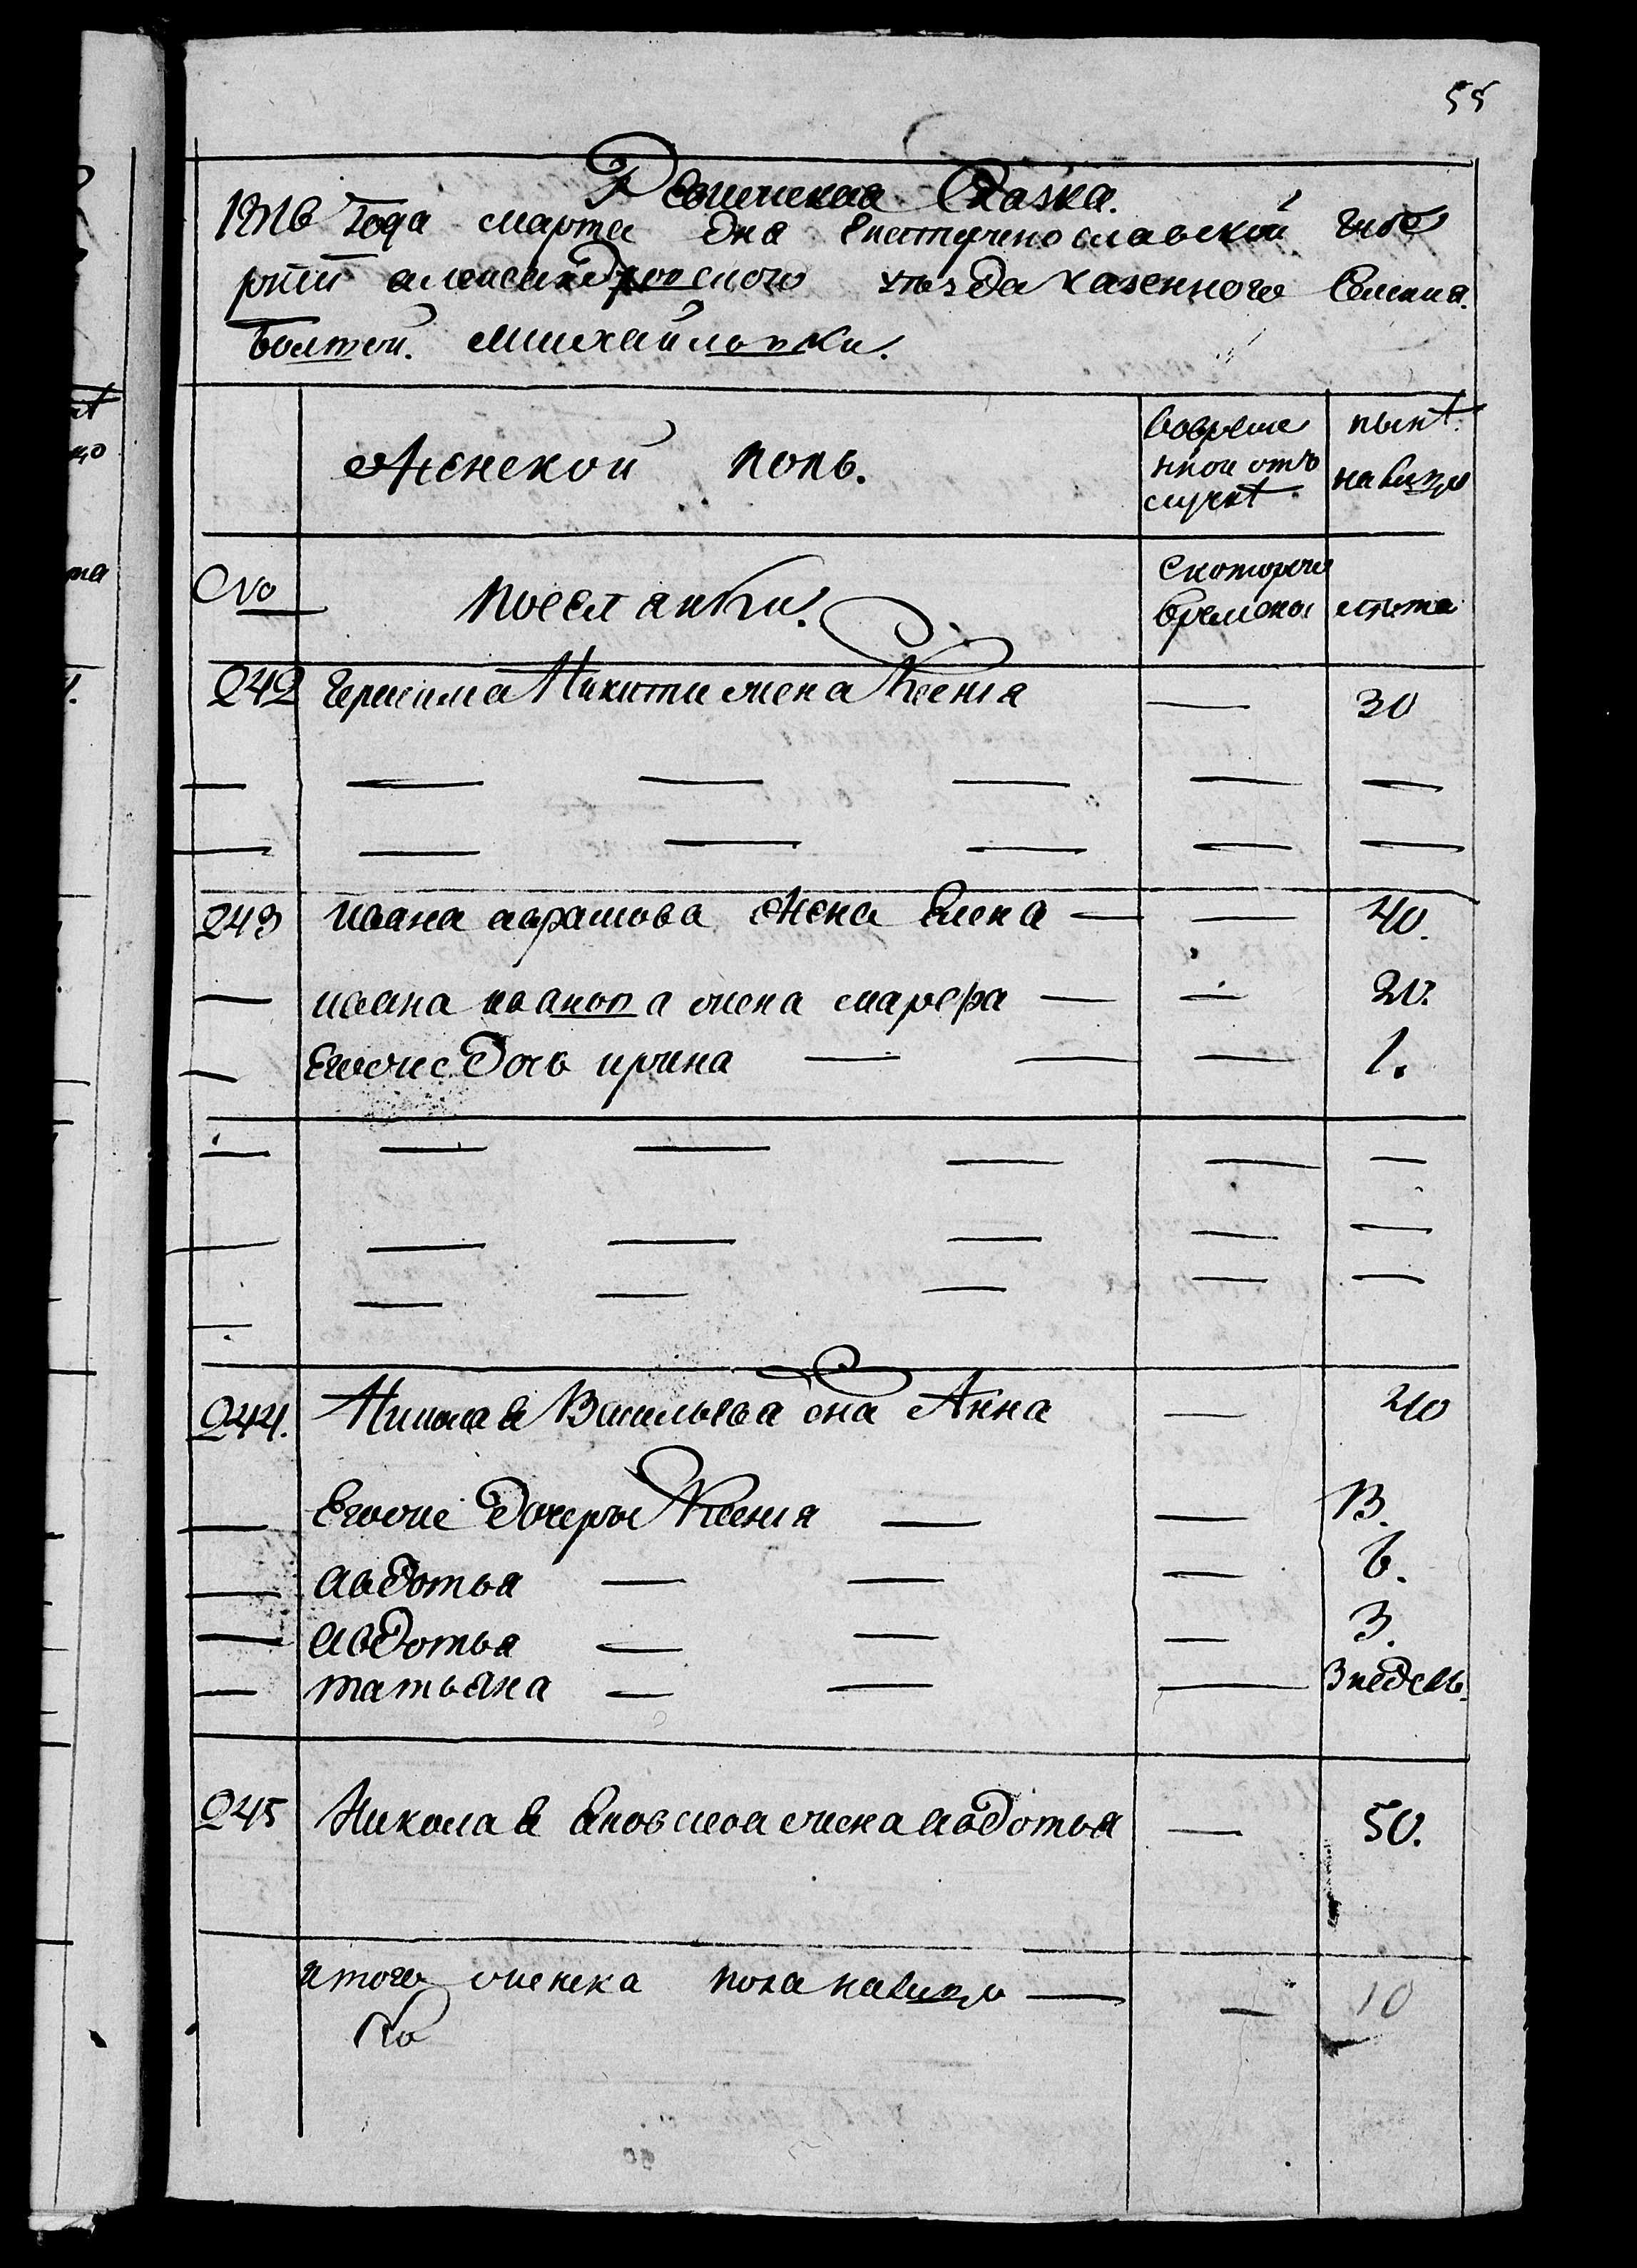 55
Ревижская Сказка.
1816 года марта дня Екатеринославской губе
рнии александровского уезда казенного Селения.
Болшой. михайловки.
Женской полъ.
вовреме
нной отъ
лучкѣ
нынѣ
налицо
No
поселянки.
Скоторого
времени
лѣта
242 Герасима Никити жена Ксения — 30
— — — — — —
— — — — — —
243 ивана аврамова жена Елена — — 40.
— ивана иванова жена марфа — — 20.
— Егожс дочь ирина — — — 1.
— — — — — —
— — — — — —
— — — — — —
244. Николая Васильева жна Анна — 40
— Егоже дочеры Ксения — — 13.
— авдотья — — — 6.
— авдотья — — — 3.
— татьяна — — — 3 недель.
245 Николая Яковлева жена авдотья — 50.
итого женска пола налицо — — 10